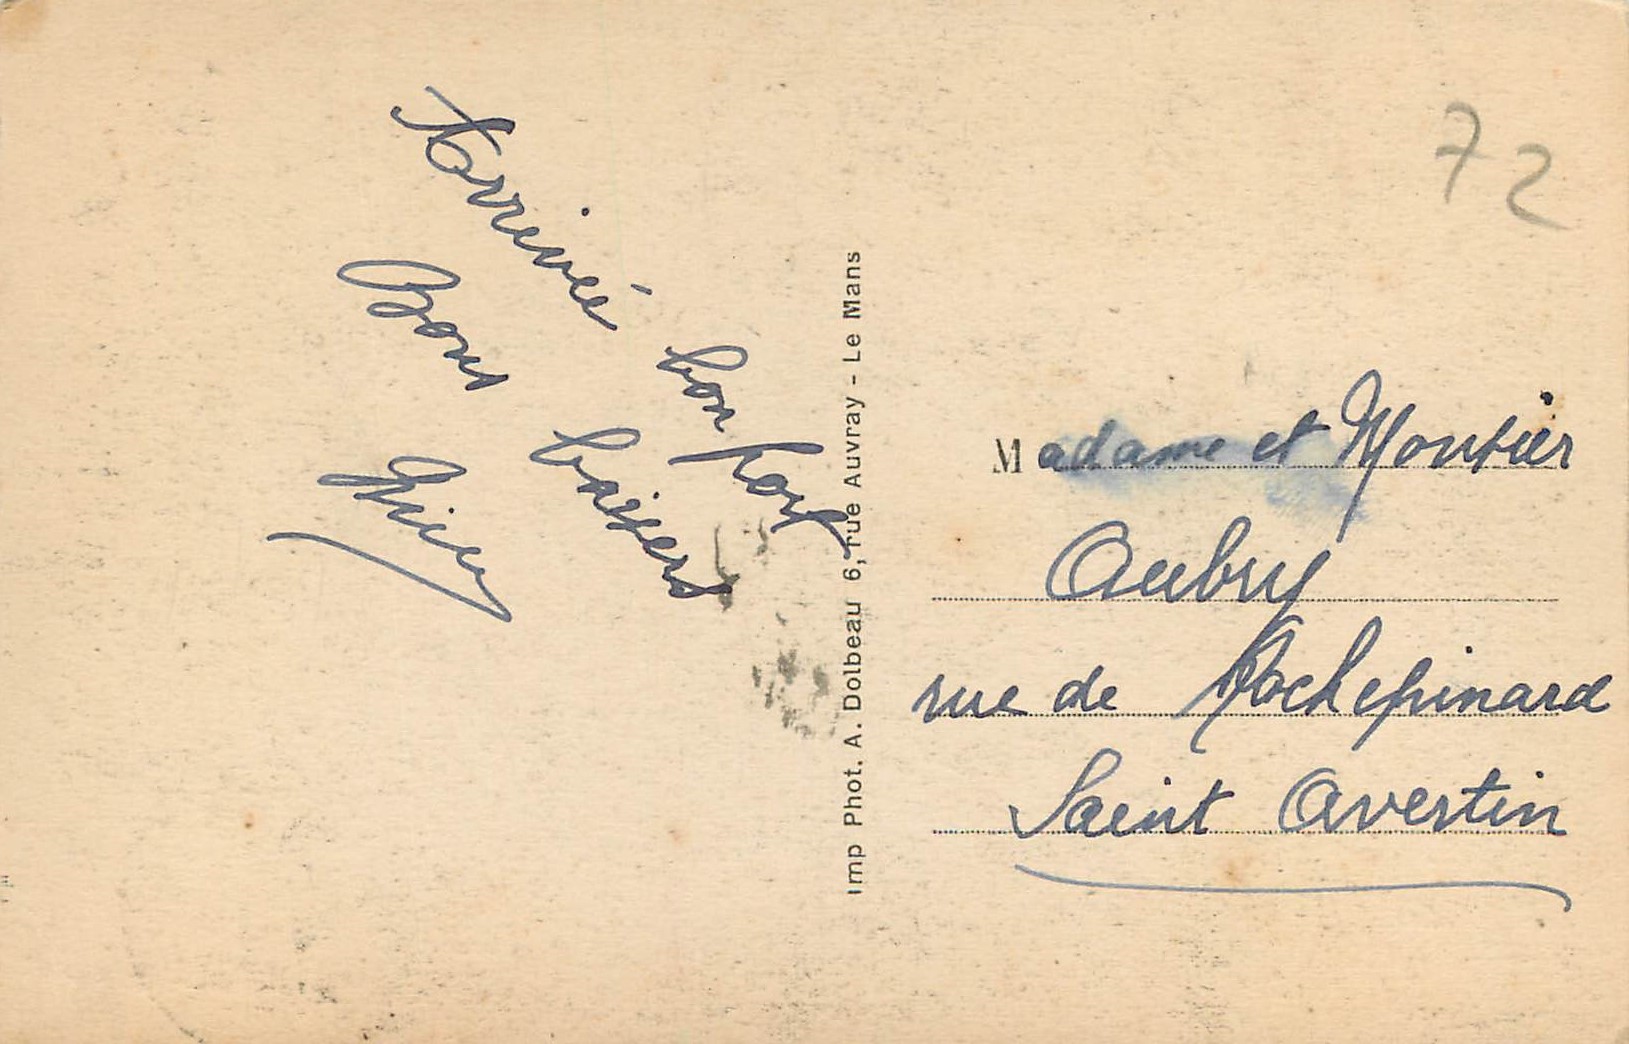 Arrivée bon port
Bons baisers
Imp Phot. A. Dolbeau 6, rue Auvray - Le Mans
72
Madame et Monsier
Aubry
rue de Rochepinard
Saint Avertin